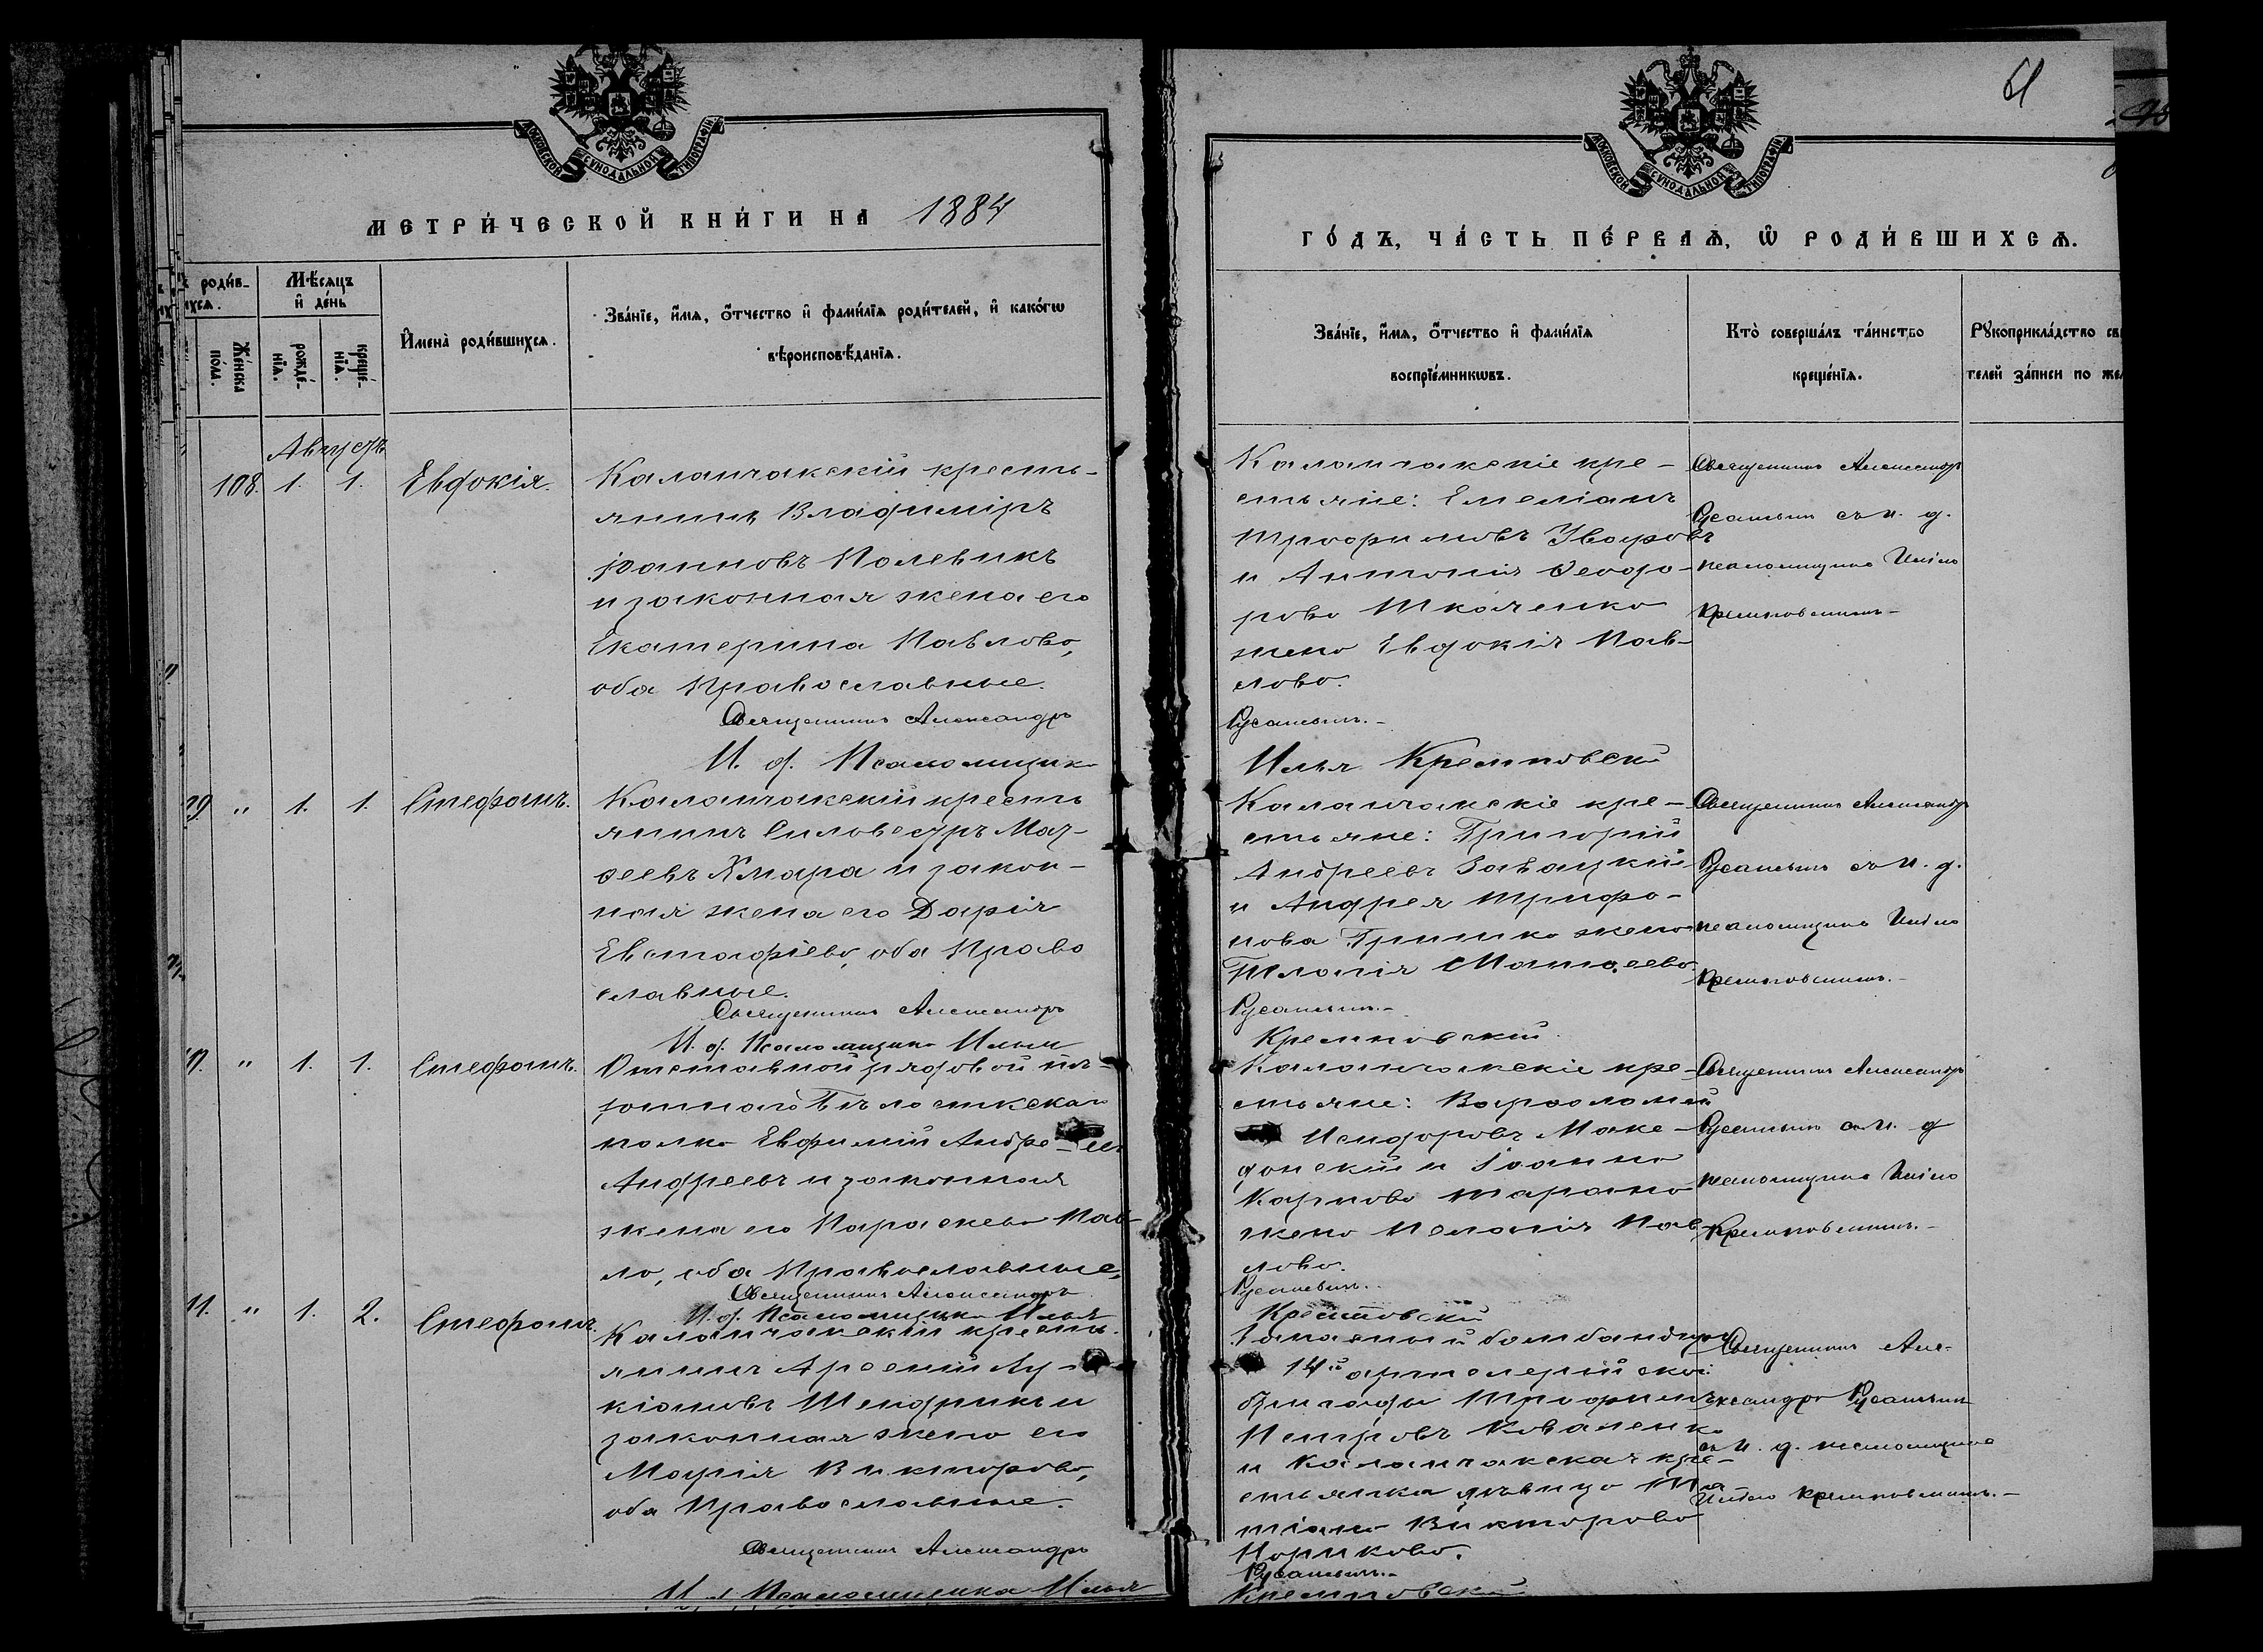 МОСКОВСКОЙ СѴНОДАЛЬНОЙ ТИПОГРАФІИ
МЕТРИ́ЧЕСКОЙ КНИ́ГИ НА 1884
роди́в-
шихся.
Же́нска по́ла.
Мѣ́сяцъ и҆ де́нь
рожде́-нїѧ.
креще́-нїѧ.
И҆мена̀ роди́вшихсѧ.
Зва́нїе, и҆́мѧ, ѻ҆́тчество и҆ фами́лїѧ роди́телей, и҆ како́гѡ
вѣроисповѣ́данїѧ.
Августъ
108. 1. 1. Евдокія.
Каланчакскій кресть-
янинъ Владиміръ
Іоанновъ Полевикъ
и законная жена его
Екатерина Павлова,
оба Православные.
Священникъ Александръ
И. д. Псаломщика
" 1. 1. Стефанъ.
Каланчакскій кресть
янинъ Силовестръ Мат-
ѳеевъ Хмара и закон-
ная жена его Дарія
Евстафіева, оба Право
славные.
Священникъ Александръ
И. д. Псаломщика Илья
" 1. 1. Стефанъ.
Отставной рядовой пѣ-
хотнаго Бѣлостокскаго
полка Евфимій Андре-
Андреевъ и законная
жена его Параскева Пав-
ло, оба Православные,
Священникъ Александръ
И. д. Псаломщика Илья
11. " 1. 2. Стефанъ.
Каланчакскій кресть-
янинъ Арсеній Лу-
кіановъ Шендрикъ и
законная жена его
Марія Викторова,
оба Православные.
Священникъ Александръ
И. д. Псаломщика Илья
61
МОСКОВСКОЙ СѴНОДАЛЬНОЙ ТИПОГРАФІИ
ГО́ДЪ, ЧА́СТЬ ПЕ́РВАѦ, Ѡ҆ РОДИ́ВШИХСѦ.
Зва́нїе, и҆́мѧ, ѻ҆́тчество и҆ фами́лїѧ
воспрїе́мникѡвъ.
Кто̀ соверша́лъ та́инство
креще́нїѧ.
Рꙋкоприкла́дство
телей за́писи по
Каланчакскіе кре-
стьяне: Емеліанъ
Трофимовъ Уваровъ
и Антонія Ѳеодо-
рова Ткаченко
жена Евдокія Пав-
лова.
Русаневичъ.-
Илья Кремповскій
Священникъ Александръ
Русаневичъ съ и. д.
псаломщика Иліею
Кремповскимъ-
Каланчакскіе кре-
стьяне: Григорій
Андреевъ Завацкій
и Андрея Трифо-
нова Гришко жена
Меланія Матѳеева
Русаневичъ.-
Кремповскій.
Священникъ Александръ
Русаневичъ съ и. д.
псаломщика Иліею
Кремповскимъ.-
Каланчакскіе кре-
стьяне: Варѳоломей
Исидоровъ Маке-
донскій и Іоанна
Карпова Тарана
жена Меланія Пав-
лова.
Русаневичъ.
Кремповскій
Священникъ Александръ
Русаневичъ съ и. д
псаломщика Иліею
Кремповскимъ.-
Запасный бомбандиръ
14й артилерійской
бригады Трофимъ
Петровъ Коваленко
и Каланчакская кре-
стьянка дѣвица Та
тіана Викторова
Норикова.
Русаневичъ.-
Кремповскій
Священникъ Але-
ксандръ Русаневичъ
съ и. д. псаломщика
Иліею Кремповскимъ.-